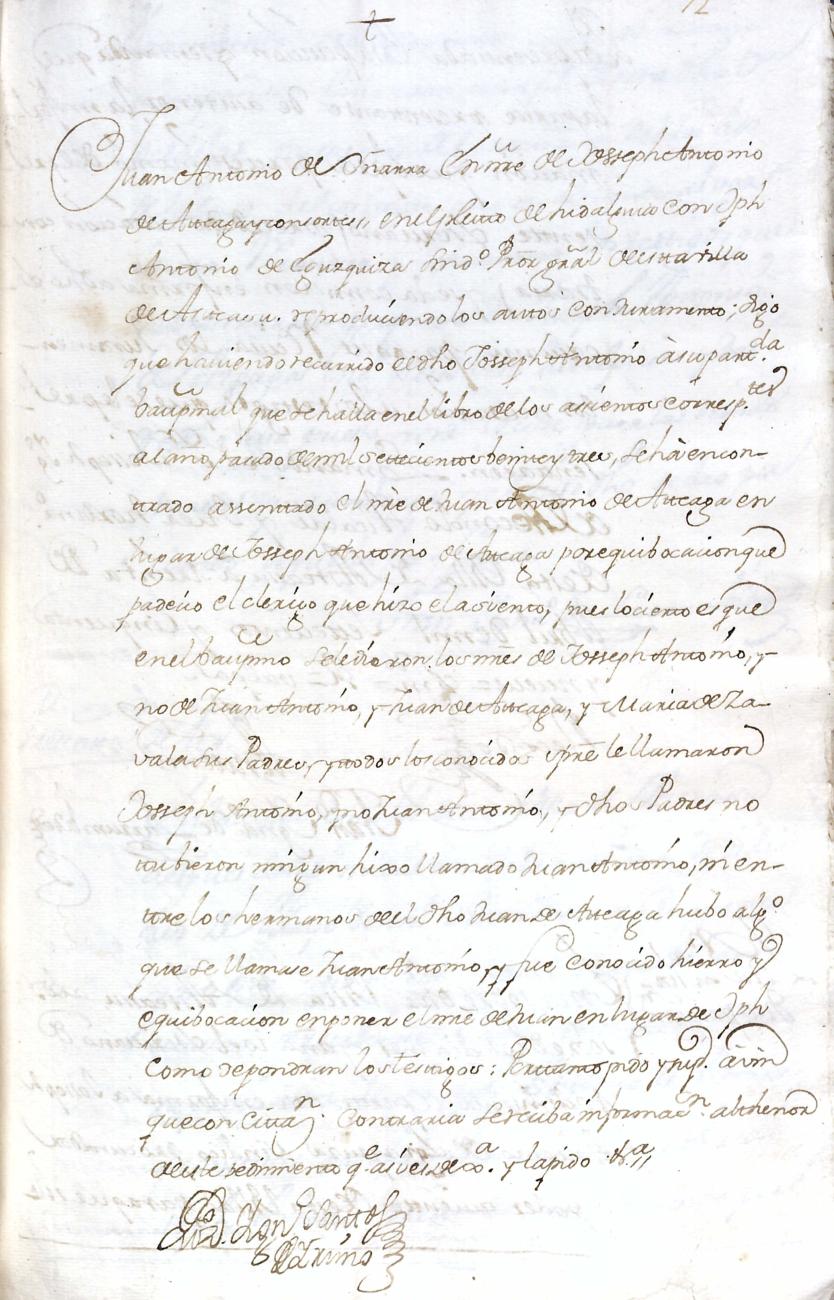 12
Juan Antonio de Ynarra En nre de Josseph Antonio
de Arteaga y consortes, en el pleito de hidalguia con Jph
Antonio de Eguzquiza Sindo Pror gral de esta villa
de reproduciendo los autos con Juramento; digo
que haviendo recurrido el dho Josseph Antonio à su parda
baupmal que se halla en el libro de los assientos corresp.tes
al ano pasado de mil settecientos beinte y tres, se hà encon-
trado assentado el nre de Juan Antonio de Arteaga en
lugar de Josseph Antonio de Arteaga por equibocacion que
padecio el clerigo que hizo el asiento, pues lo cierto es que
en el baupmo se le dieron los nres de Josseph Antonio, y
no de Juan Antonio, y Juan de Arteaga, y Maria de Za-
vala sus Padres, y todos los conocidos spre le llamaron
Josseph Antonio, y no Juan Antonio, y dhos Padres no
tubieron ningun hixo llamado Juan Antonio, ni en-
tre los hermanos de el dho Juan de Arteaga hubo algo
que se llamase Juan Antonio, y fue conocido hierro y
equibocacion en poner el nre de Juan en lugar de Jph
como depondran los testigos: Por tanto pido y supco. à vm
que con Cittan. contraria se reciba informacn. al thenor
de este pedimento qe. asi es de xa. y la pido &a
Lizdo. Dn Santos